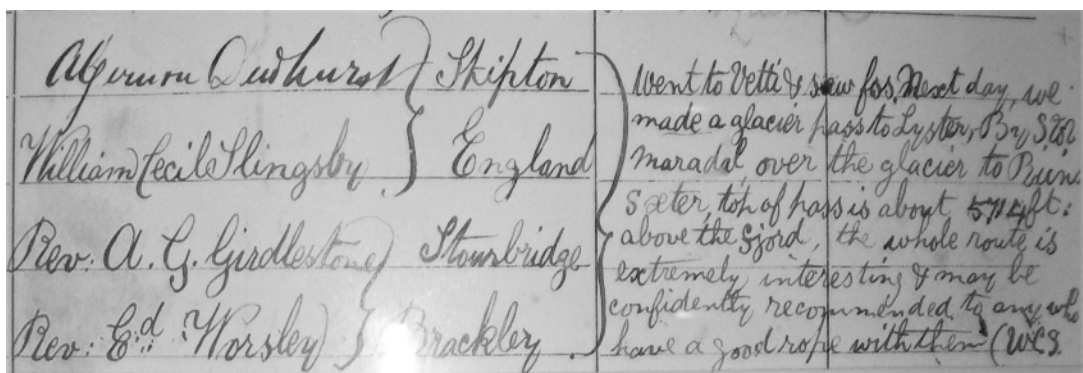 Algernon Dewhurst } Skipton
William Cecil Slingsby } England
Rev. A. G. Girdlestone Stourbridge
Rev: Ed. Worsley } Brackley
Went to Vetti & saw foss. Next day, we
made a glacier pass to Lyster, By Stor
maradal, over the glacier to Riin.
Sæter, top of pass is about 5714 ft:
above the fjord, the whole route is
extremely interesting & may be
confidently recommended to any who
have a good rope with them (WCS.